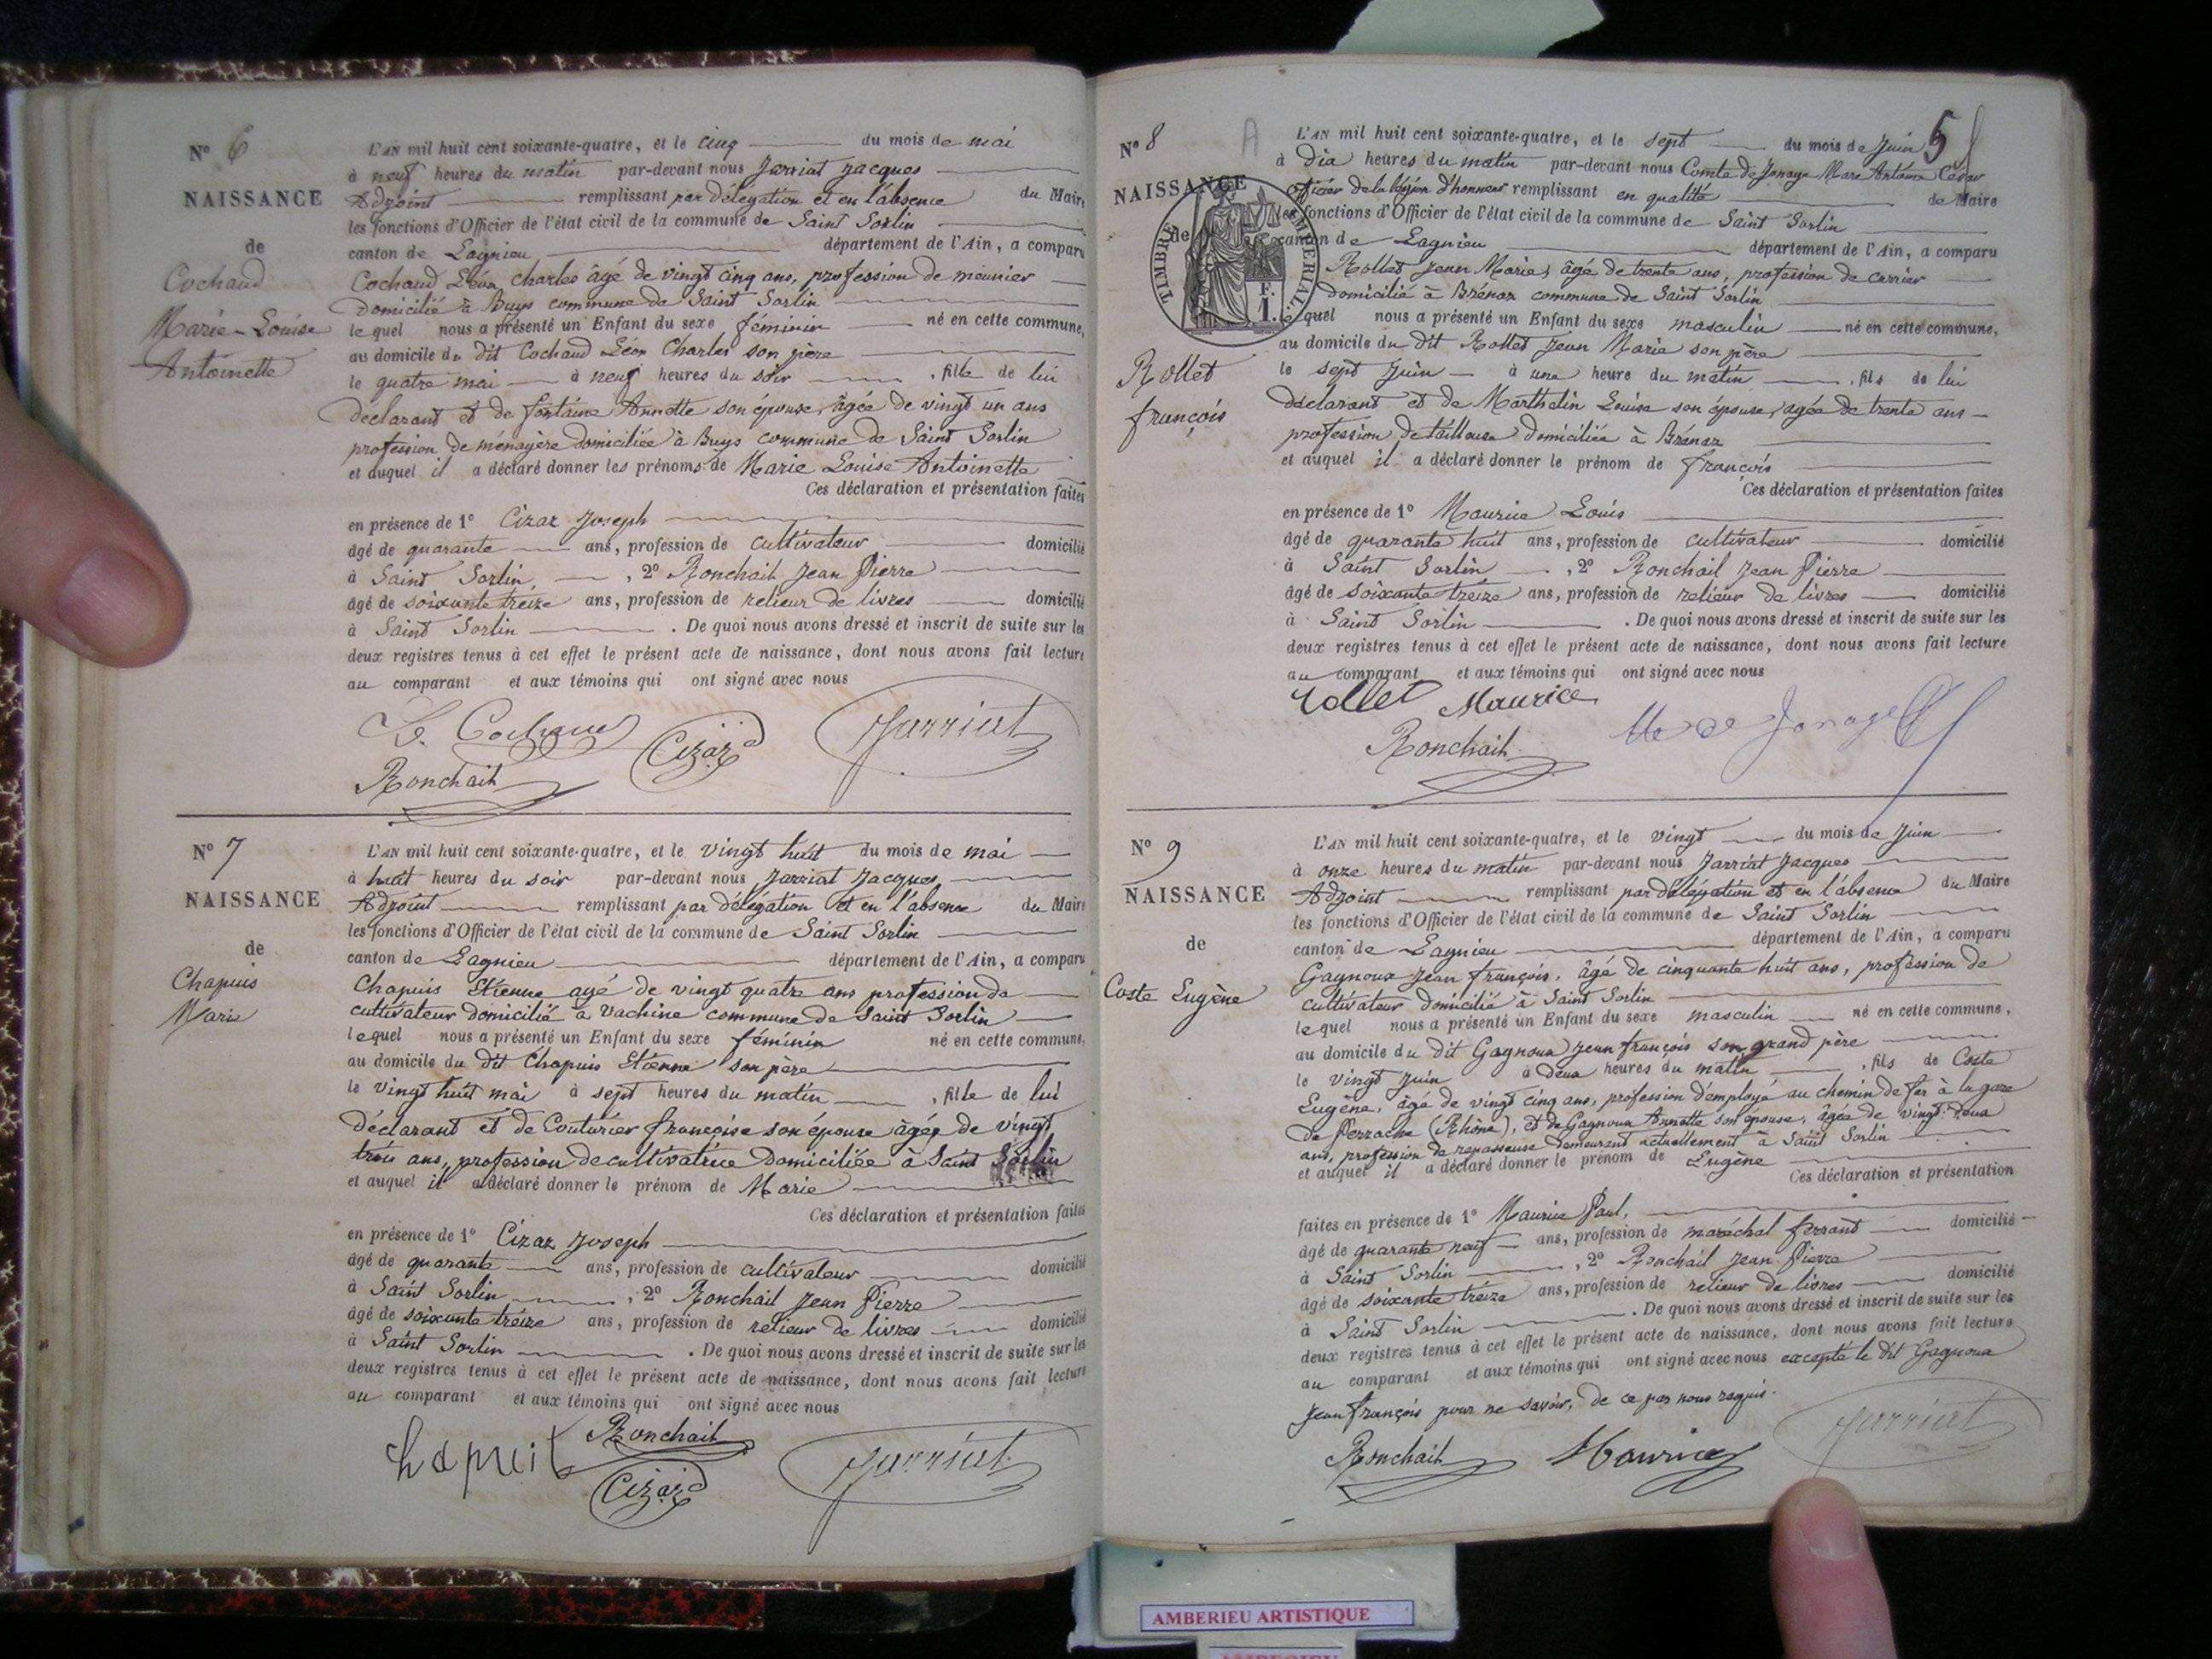 N° 6
NAISSANCE
de
Cochaud
Marie-Louise
Antoinette
L'AN mil huit cent soixante-quatre, et le cinq du mois de mai
à neuf heures du matin par-devant nous Jarriat Jacques
Adjoint remplissant par délégation et en l'absence du Maire
les fonctions d'Officier de l'état civil de la commune de Saint Sorlin
canton de Lagnieu département de l'Ain, a comparu
Cochaud Léon Charles âgé de vingt cinq ans, profession de meunier
domicilié à Buys commune de Saint Sorlin
lequel nous a présenté un Enfant du sexe féminin né en cette commune,
au domicile du dit Cochaud Léon Charles son père
le quatre mai à neuf heures du soir, fille de lui
déclarant et de fontaine Annette son épouse, âgée de vingt un ans
profession de ménagère domiciliée à Buys commune de Saint Sorlin
et auquel il a déclaré donner les prénoms de Marie Louise Antoinette
Ces déclaration et présentation faites
en présence de 1° Cizaz Joseph
âgé de quarante ans, profession de cultivateur domicilié
à Saint Sorlin, 2° Ronchail Jean Pierre
âgé de soixante treize ans, profession de relieur de livres domicilié
à Saint Sorlin. De quoi nous avons dressé et inscrit de suite sur les
deux registres tenus à cet effet le présent acte de naissance, dont nous avons fait lecture
au comparant et aux témoins qui ont signé avec nous
Cizaz Jarriat
Ronchail
N° 7
NAISSANCE
de
Chapuis
Marie
L'AN mil huit cent soixante-quatre, et le vingt huit du mois de mai
à huit heures du soir par-devant nous Jarriat Jacques
Adjoint remplissant par délégation et en l'absence du Maire
les fonctions d'Officier de l'état civil de la commune de Saint Sorlin
canton de Lagnieu département de l'Ain, a comparu
Chapuis Etienne agé de vingt quatre ans profession de
cultivateur domicilié à Vachine commune de Saint Sorlin
lequel nous a présenté un Enfant du sexe féminin né en cette commune,
au domicile du dit Chapuis Etienne son père
le vingt huit mai à sept heures du matin, fille de lui
déclarant et de Couturier françoise son épouse âgée de vingt
trois ans, profession de cultivatrice domiciliée à Saint Sorlin
et auquel il a déclaré donner le prénom de Marie
Ces déclaration et présentation faites
en présence de 1° Cizaz Joseph
âgé de quarante ans, profession de cultivateur domicilié
à Saint Sorlin, 2° Ronchail Jean Pierre
âgé de soixante treize ans, profession de relieur de livres domicilié
à Saint Sorlin. De quoi nous avons dressé et inscrit de suite sur les
deux registres tenus à cet effet le présent acte de naissance, dont nous avons fait lecture
au comparant et aux témoins qui ont signé avec nous
Ronchail
Cizaz Jarriat
5
N° 8
A
NAISSANCE
de
TIMBRE IMPERIAL
1 F.
Rollet
françois
L'AN mil huit cent soixante-quatre, et le sept du mois de Juin
à dix heures du matin par-devant nous Comte de Jonage Marc Antoine César
officier de la légion d'honneur remplissant en qualité de Maire
les fonctions d'Officier de l'état civil de la commune de Saint Sorlin
canton de Lagnieu département de l'Ain, a comparu
Rollet Jean Marie, âgé de trente ans, profession de carrier
domicilié à Brénaz commune de Saint Sorlin
lequel nous a présenté un Enfant du sexe masculin né en cette commune,
au domicile du dit Rollet Jean Marie son père
le sept Juin à une heure du matin, fils de lui
déclarant et de Marthelin Louise son épouse, agée de trente ans
profession de tailleuse domiciliée à Brénaz
et auquel il a déclaré donner le prénom de françois
Ces déclaration et présentation faites
en présence de 1° Maurice Louis
âgé de quarante huit ans, profession de cultivateur domicilié
à Saint Sorlin, 2° Ronchail Jean Pierre
âgé de soixante treize ans, profession de relieur de livres domicilié
à Saint Sorlin. De quoi nous avons dressé et inscrit de suite sur les
deux registres tenus à cet effet le présent acte de naissance, dont nous avons fait lecture
au comparant et aux témoins qui ont signé avec nous
Rollet Maurice
Ronchail
N° 9
NAISSANCE
de
Coste Eugène
L'AN mil huit cent soixante-quatre, et le vingt du mois de Juin
à onze heures du matin par-devant nous Jarriat Jacques
Adjoint remplissant par délégation et en l'absence du Maire
les fonctions d'Officier de l'état civil de la commune de Saint Sorlin
canton de Lagnieu département de l'Ain, a comparu
Gagnoux Jean françois, âgé de cinquante huit ans, profession de
cultivateur domicilié à Saint Sorlin
lequel nous a présenté un Enfant du sexe masculin né en cette commune,
au domicile du dit Gagnoux Jean françois son grand père
le vingt Juin à deux heures du matin, fils de Coste
Eugène, âgé de vingt cinq ans, profession d'employé au chemin de fer à la gare
de Perrache (Rhône), et de Gagnoux Annette son épouse, âgée de vingt deux
ans, profession de repasseuse demeurant actuellement à Saint Sorlin
et auquel il a déclaré donner le prénom de Eugène Ces déclaration et présentation
faites en présence de 1° Maurice Paul,
âgé de quarante neuf ans, profession de maréchal ferrant domicilié
à Saint Sorlin, 2° Ronchail Jean Pierre
âgé de soixante treize ans, profession de relieur de livres domicilié
à Saint Sorlin. De quoi nous avons dressé et inscrit de suite sur les
deux registres tenus à cet effet le présent acte de naissance, dont nous avons fait lecture
au comparant et aux témoins qui ont signé avec nous excepté le dit Gagnoux
Jean françois pour ne savoir, de ce par nous requis.
Ronchail Maurice Jarriat
AMBERIEU ARTISTIQUE